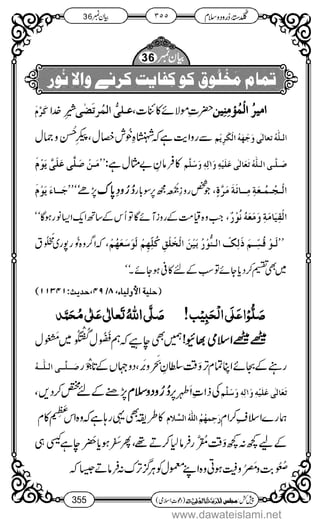 گلدستۂ درود و سلام ۳۵۵ بیان نمبر 36
بیان نمبر 36
تمام مخلوق کو کفایت کرنے والا نور
امیرُ المؤمنین حضرتِ مولائے کائنات، علیُّ المرتضیٰ شیرِ خدا کَرَّمَ
اللہُ تعالٰی وَجْہَہُ الْکَرِیْم سے روایت ہے کہ شہنشاہِ خوش خصال، پیکرِ حسن و جمال
صَلَّی اللہُ تعالٰی علیہ واٰلہٖ وسلَّم کا فرمانِ بے مثال ہے: ”مَنْ صَلّٰی عَلَیَّ یَوْمَ
الْجُمُعَۃِ مِائَۃَ مَرَّۃٍ، جو شخص روزِ جمعہ مجھ پر سو بار دُرُودِ پاک پڑھے“، ”جَاءَ یَوْمَ
الْقِیَامَۃِ وَمَعَہٗ نُوْرٌ، جب وہ قیامت کے روز آئے گا تو اس کے ساتھ ایک ایسا نور ہوگا“
”لَوْ قُسِمَ ذٰلِکَ النُّوْرُ بَیْنَ الْخَلْقِ کُلِّہِمْ لَوَسِعَہُمْ، کہ اگر وہ نور پوری مخلوق
میں بھی تقسیم کر دیا جائے تو سب کے لئے کافی ہو جائے۔“
(حلیۃ الاولیاء، ۸/۴۹، حدیث: ۱۱۳۴۱)
صَلُّوْا عَلَی الْحَبِیْب! صَلَّی اللہُ تعالٰی عَلٰی مُحَمَّد
میٹھے میٹھے اسلامی بھائیو! ہمیں بھی چاہیے کہ ہم فضول گفتگو میں مشغول
رہنے کے بجائے اپنا تمام تر وقت سلطانِ بحر و بر، دو جہاں کے تاجور صَلَّی اللہُ
تعالٰی علیہ واٰلہٖ وسلَّم کی ذاتِ اطہر پر دُرُود و سلام پڑھنے کے لئے مختص کر دیں،
ہمارے اسلافِ کرام رَحِمَہُمُ اللہُ السَّلَام کا طریقہ بھی یہی رہا ہے کہ وہ اس عظیم کام
کے لیے کچھ نہ کچھ وقت مقرر فرما لیا کرتے تھے، پھر سفر ہو یا حضر چاہے کیسی ہی
صعوبت و مصروفیت ہوتی وہ اپنے معمول کو ہرگز ترک نہ فرماتے جیسا کہ
355
www.dawateislami.net